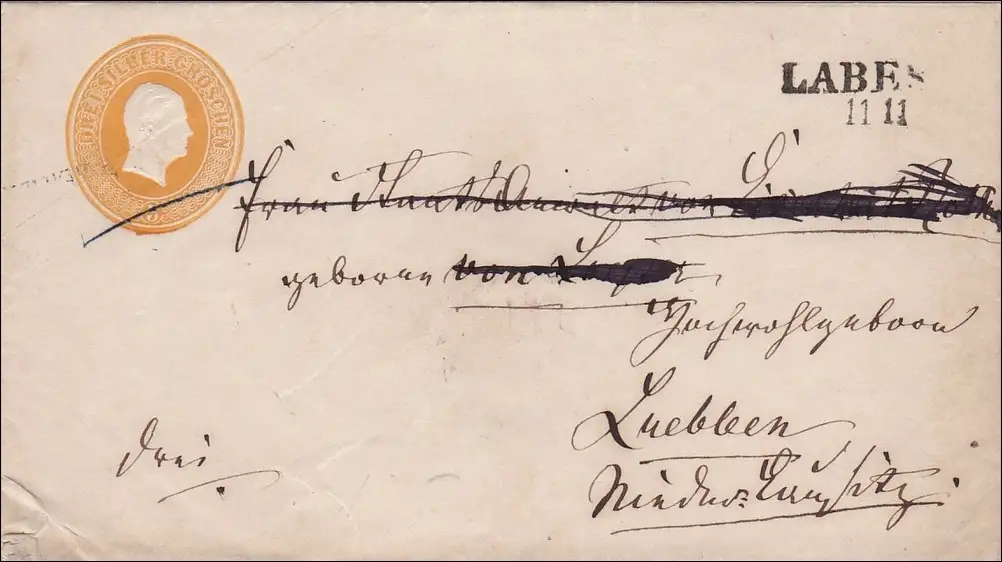 DREI SILBER GROSCHEN
3
LABES
11 11
Frau Staats Anwalt von
geborne von
Hochwohlgeboren
Luebben
Nieder=Lausitz.
frei